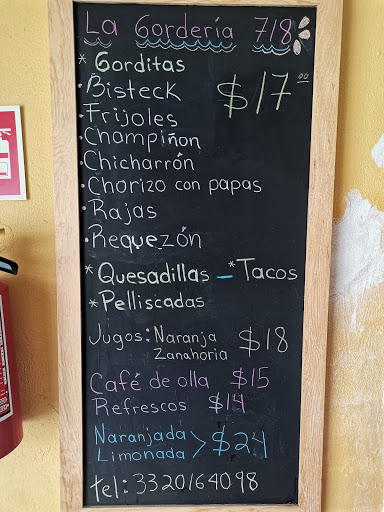 La Gordería 7/8
* Gorditas
· Bisteck $17.00
· Frijoles
· Champiñon
· Chicharrón
· Chorizo con papas
· Rajas
· Requezón
* Quesadillas - * Tacos
* Pelliscadas
Jugos: Naranja $18
Zanahoria
Café de olla $15
Refrescos $14
Naranjada > $24
Limonada
tel: 3320164098